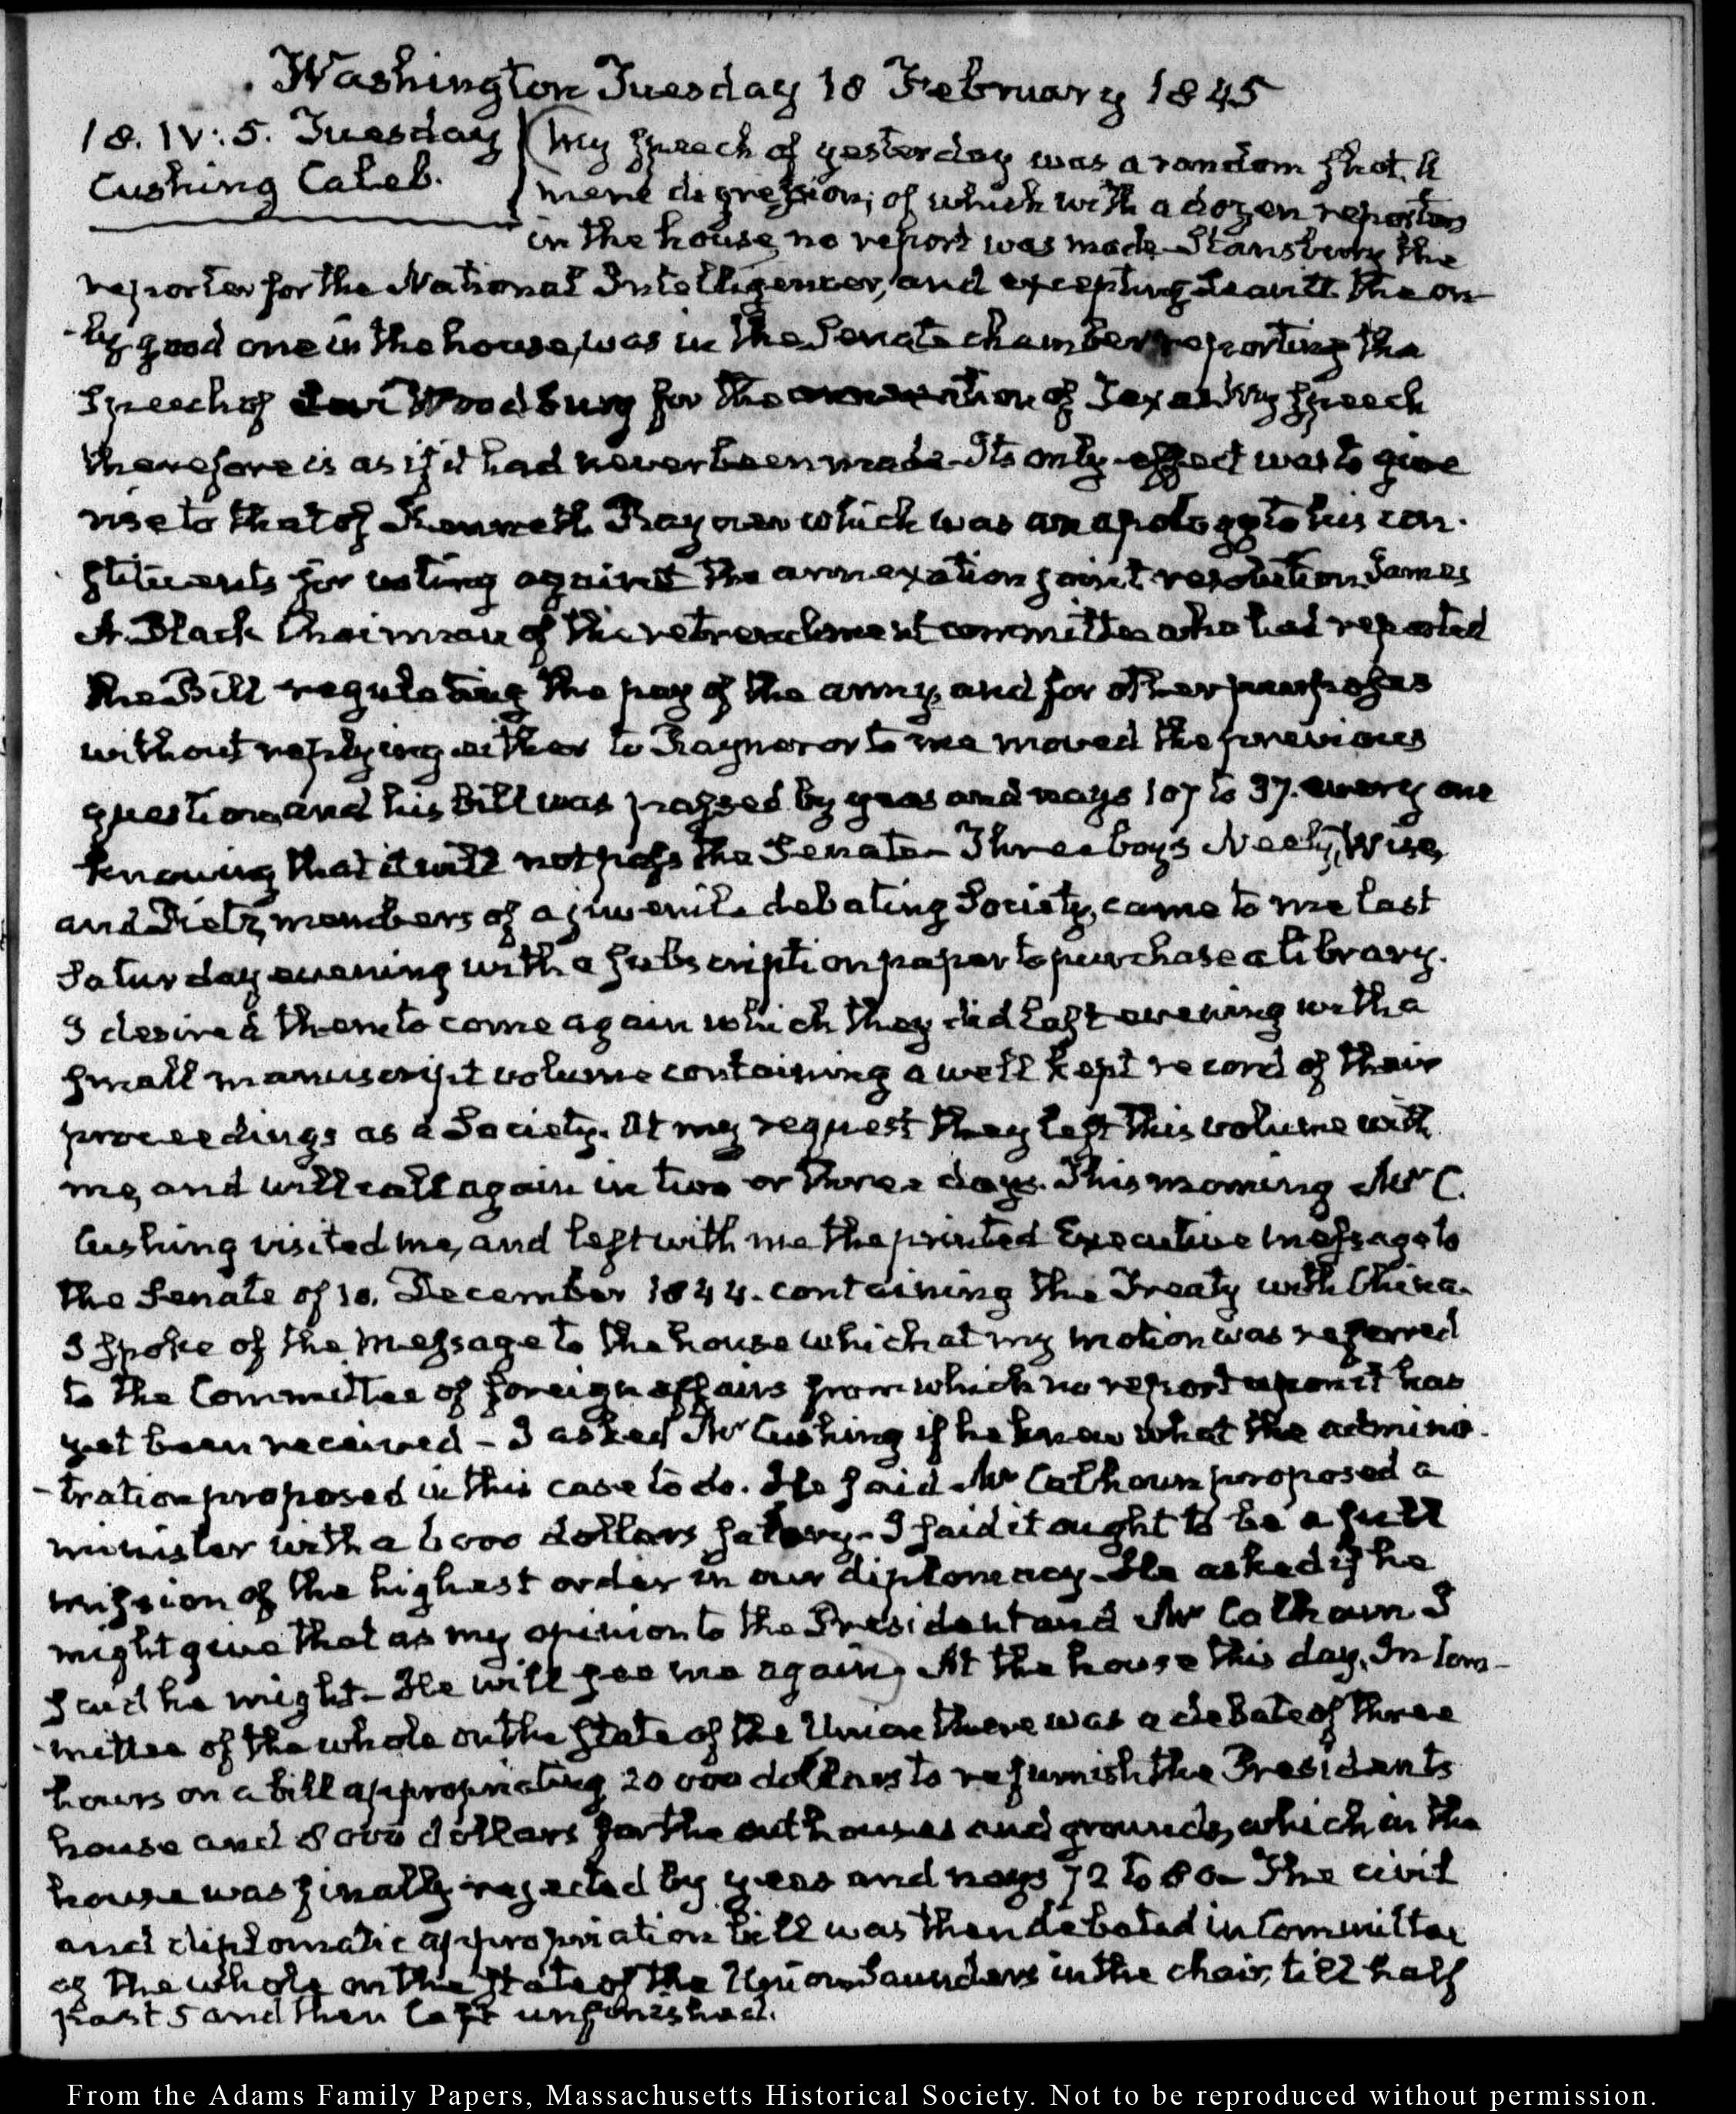 Washington Tuesday 18 February 1845
18. IV: 5. Tuesday
Cushing Caleb.
My speech of yesterday was a random shot, A
mere digression; of which with a dozen reporters
in the house, no report was made. Stansbury the
reporter for the National Intelligencer, and excepting Leavitt the on-
-ly good one in the house, was in the Senate chamber reporting the
Speech of Levi Woodbury for the annexation of Texas. My speech
therefore is as if it had never been made. Its only effect was to give
rise to that of Kenneth Rayner which was an apology to his con-
stituents for voting against the annexation joint resolution. James
A. Black Chairman of the retrenchment committee who had reported
the Bill regulating the pay of the army, and for other purposes
without replying either to Rayner or to me moved the previous
question, and his bill was passed by yeas and nays 107 to 37. every one
knowing that it will not pass the Senate— Three boys Neely, Wise,
and Dietz, members of a juvenile debating Society, came to me last
Saturday evening with a subscription paper to purchase a library.
I desired them to come again which they did last evening with a
small manuscript volume containing a well kept record of their
proceedings as a Society. At my request they left this volume with
me, and will call again in two or three days. This morning Mr C.
Cushing visited me, and left with me the printed Executive message to
the Senate of 10. December 1844. containing the Treaty with China.
I spoke of the message to the house which at my motion was referred
to the Committee of foreign affairs from which no report upon it has
yet been received – I asked Mr Cushing if he knew what the adminis-
-tration proposed in this case to do. He said Mr Calhoun proposed a
minister with a 6000 dollars salary. I said it ought to be a full
mission of the highest order in our diplomacy. He asked if he
might give that as my opinion to the President and Mr Calhoun. I
said he might. He will see me again. At the house this day. In Com-
-mittee of the whole on the state of the Union there was a debate of three
hours on a bill appropriating 20 000 dollars to refurnish the Presidents
house and 8 000 dollars for the outhouses and grounds, which in the
house was finally rejected by yeas and nays 72 to 80— The civil
and diplomatic appropriation bill was then debated in Committee
of the whole on the state of the Union Saunders in the chair, till half
past 5 and then left unfinished.
From the Adams Family Papers, Massachusetts Historical Society. Not to be reproduced without permission.